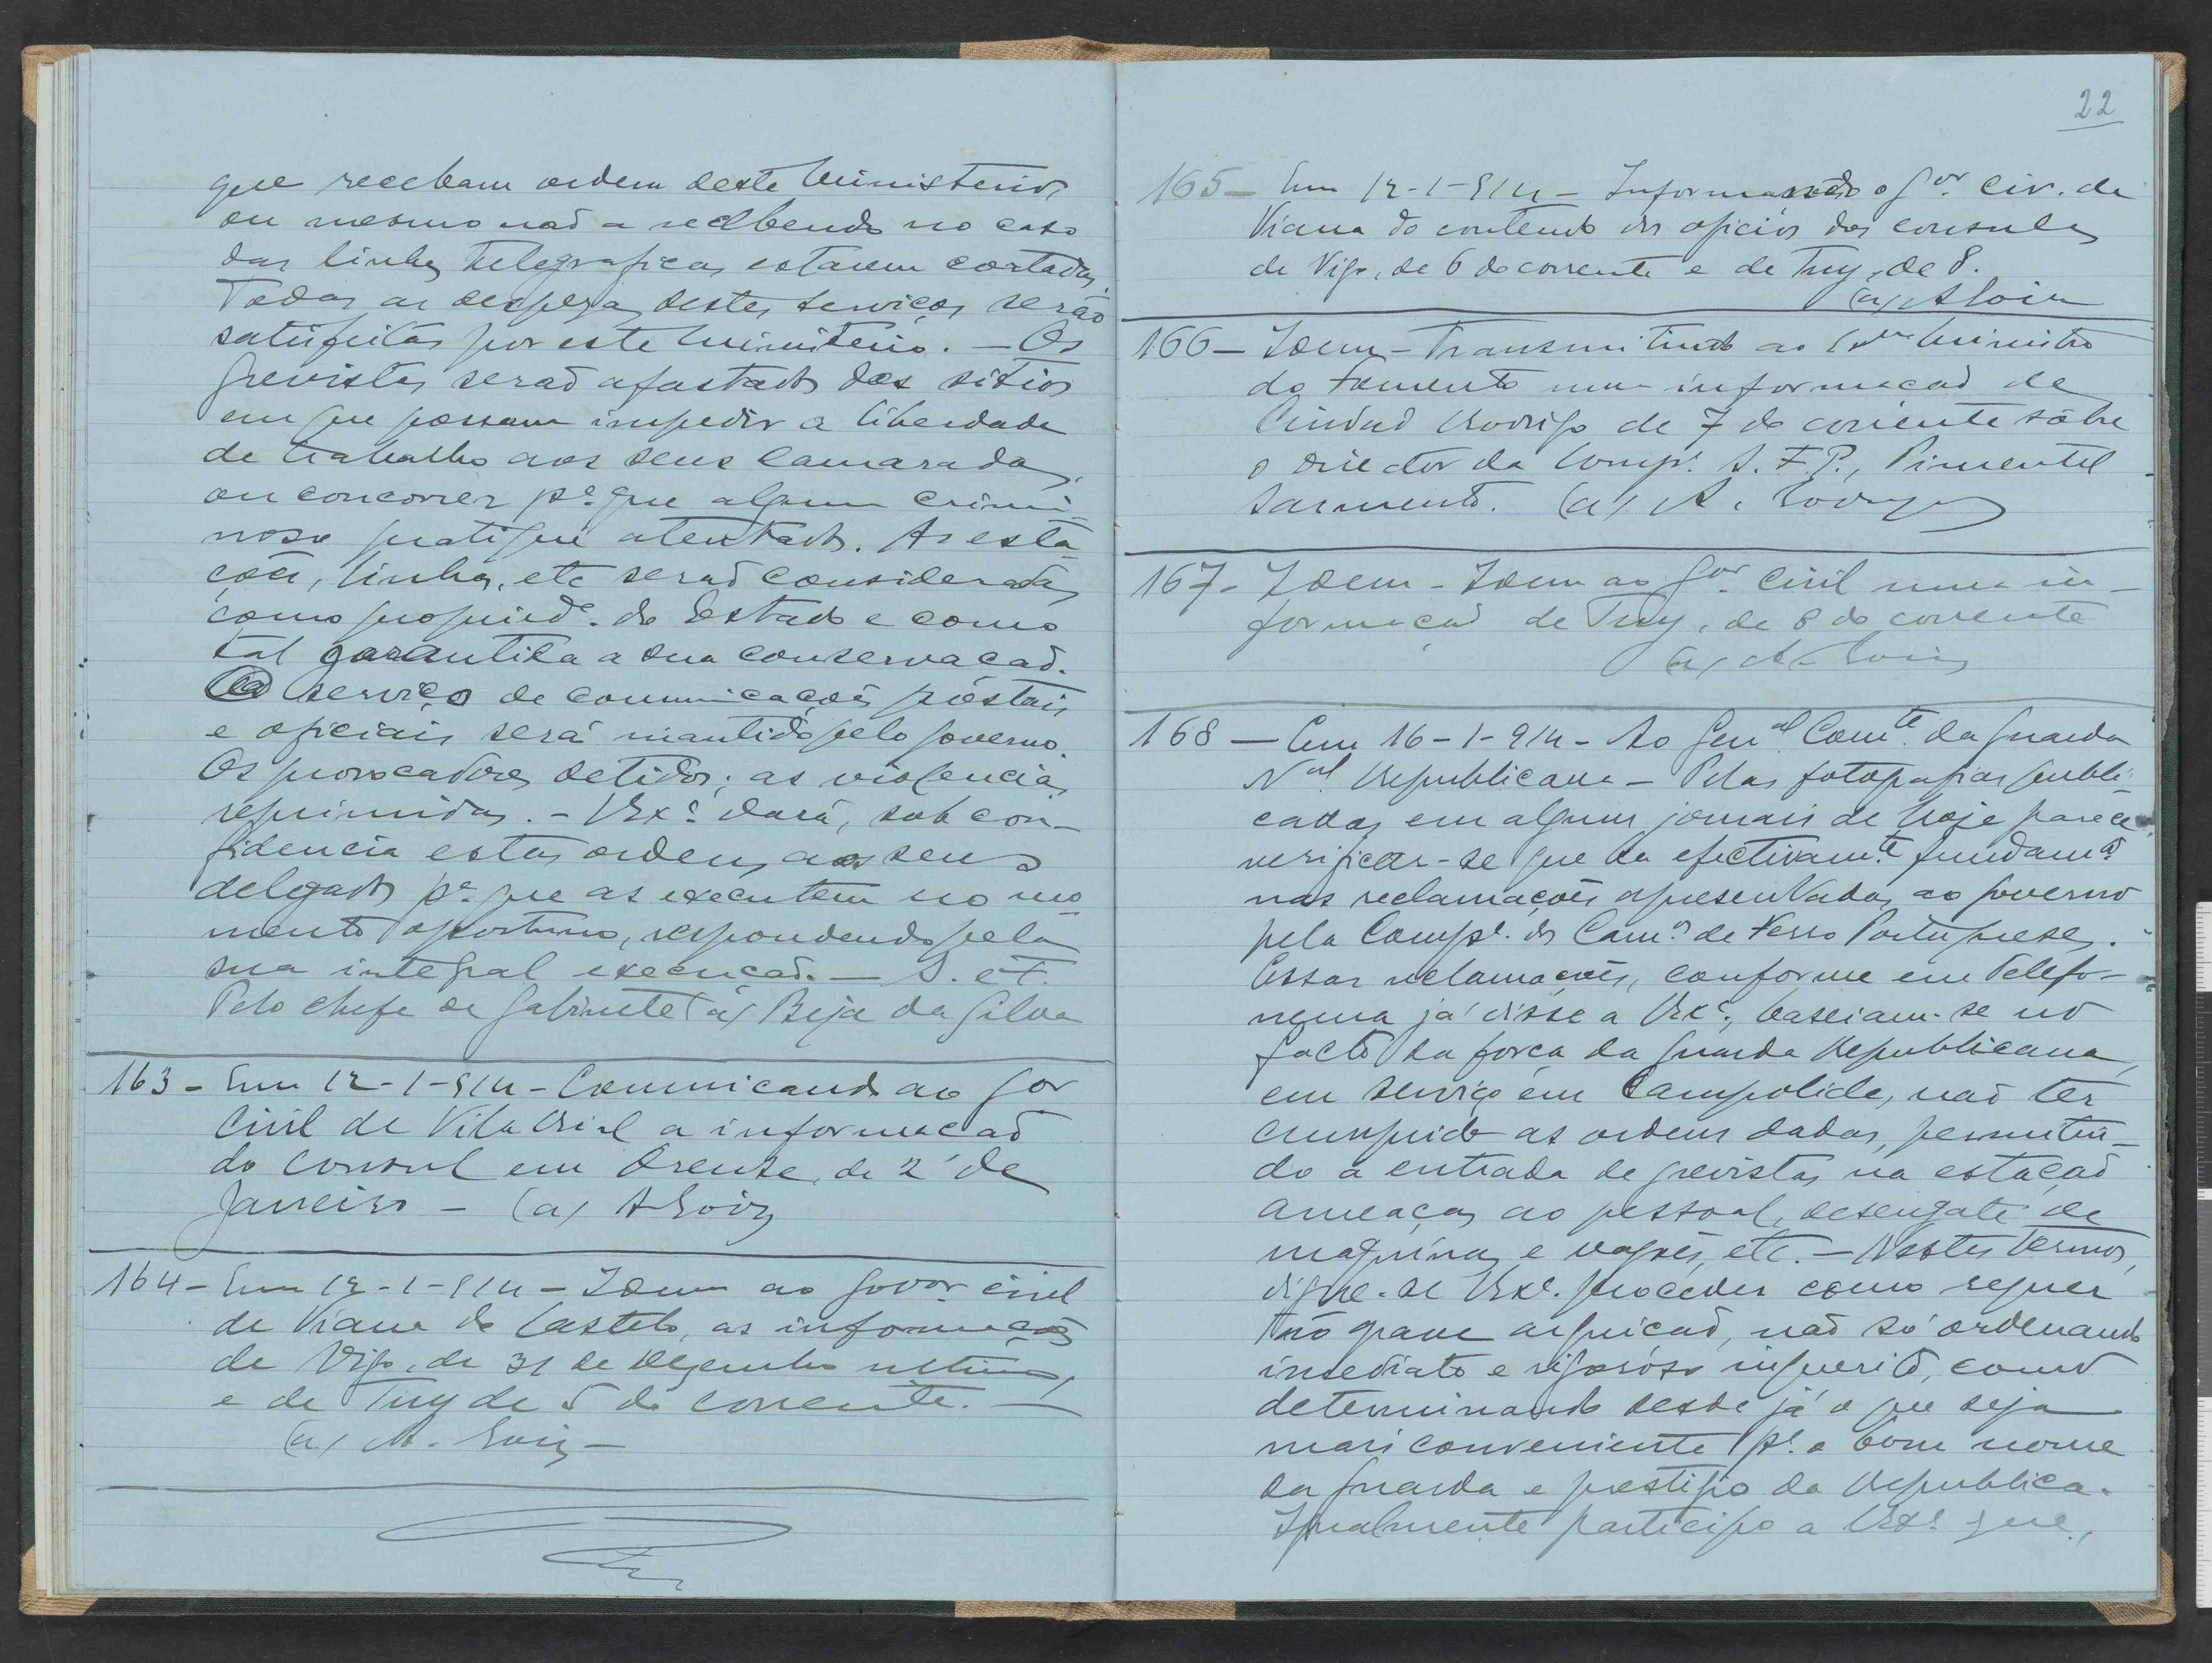 que recebam ordem deste Ministerio,
ou mesmo não a recebendo no caso
das linhas telegraficas estarem cortadas.
Todas as despezas destes serviços serão
satisfeitas por este Ministerio. — Os
grevistas serão afastados dos sitios
em que possam impedir a liberdade
de trabalho aos seus camaradas,
ou concorrer pª que algum crimi-
noso pratique atentados. As esta-
ções, linhas, etc serão consideradas
como propried.e do Estado e como
tal garantida a sua conservação.
O serviço de comunicações postais
e oficiais será mantido pelo governo.
Os provocadores detidos; as violencias
reprimidas. - VExª dará, sob con-
fidencia estas ordens, aos seus
delegados pª que as executem no mo-
mento oportuno, respondendo pela
sua integral execução. — S. e F.
Pelo chefe de gabinete (a) Beja da Silva
163 - Em 12-1-914 - Comunicando ao Gor
Civil de Vila Rial a informação
do consul em Orense, de 2 de
Janeiro - (a)
164 - Em 12-1-914 - Idem ao Govor civil
de Viana do Castelo, as informações
de Vigo, de 31 de Dezembro ultimo,
e de Tuy de 5 do corrente. —
(a)
22
165 - Em 12-1-914 - Informando o Gor civ. de
Viana do conteudo dos oficios dos consules
de Vigo, de 6 do corrente e de Tuy, de 8.
(a)
166 - Idem - Transmitindo ao Exmo Ministro
do Fomento uma informação de
Ciudad Rodrigo de 7 do corrente sobre
o director da Compª S. F. P., Pimentel
Sarmento. (a)
167 - Idem - Idem ao Gor Civil uma in-
formação de Tuy, de 8 do corrente
(a)
168 - Em 16-1-914 - Ao Genal Comte da Guarda
Nal Republicana - Pelas fotografias publi-
cadas em alguns jornais de hoje parece
verificar-se que ha efectivamte fundamto
nas reclamações apresentadas ao governo
pela Compª dos Camos de Ferro Portugueses.
Essas reclamações, conforme em telefo-
nema já disse a VExª, baseiam-se no
facto da força da Guarda Republicana,
em serviço em Campolide, não ter
cumprido as ordens dadas, permitin-
do a entrada de grevistas na estação
ameaças ao pessoal, desengate de
maquinas e vagões, etc. — Nestes termos,
digne-se VExª proceder como requer
tão grave arguição, não só ordenando
imediato e rigoroso inquerito, como
determinando desde já o que seja
mais conveniente pª o bom nome
da Guarda e prestigio da Republica.
Igualmente participo a VExª que,